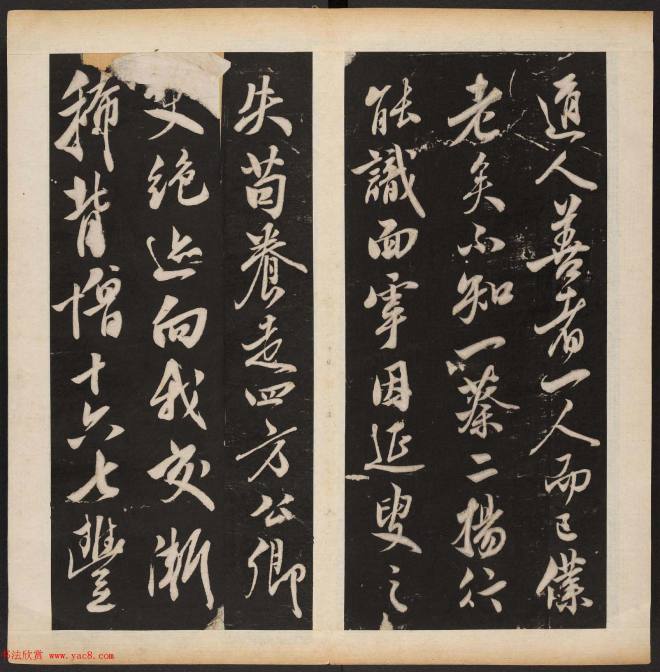 道人善者一人而已僕
老矣不知一蔡二楊行
能識面寧因延叟之
失苟養走四方公卿
絶迹向我交漸
稀背憎十六七
书法欣赏 www.yac8.com